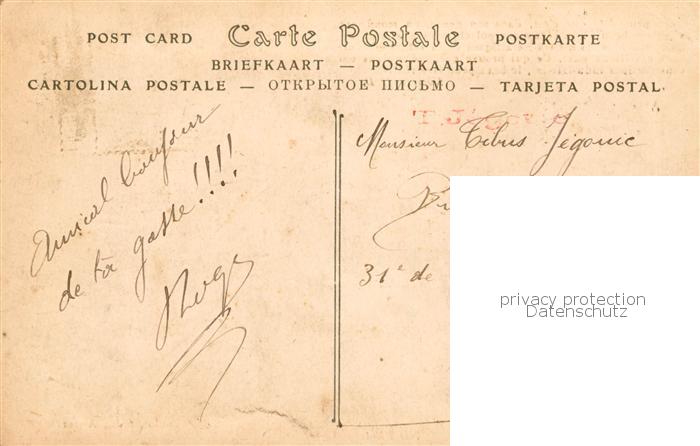 POST CARD Carte Postale POSTKARTE
BRIEFKAART — POSTKAART
CARTOLINA POSTALE — ОТКРЫТОЕ ПИСЬМО — TARJETA POSTAL
Amical bonjour
de ta gosse!!!!
Monsieur Titus Jégouic
31e de
privacy protection
Datenschutz